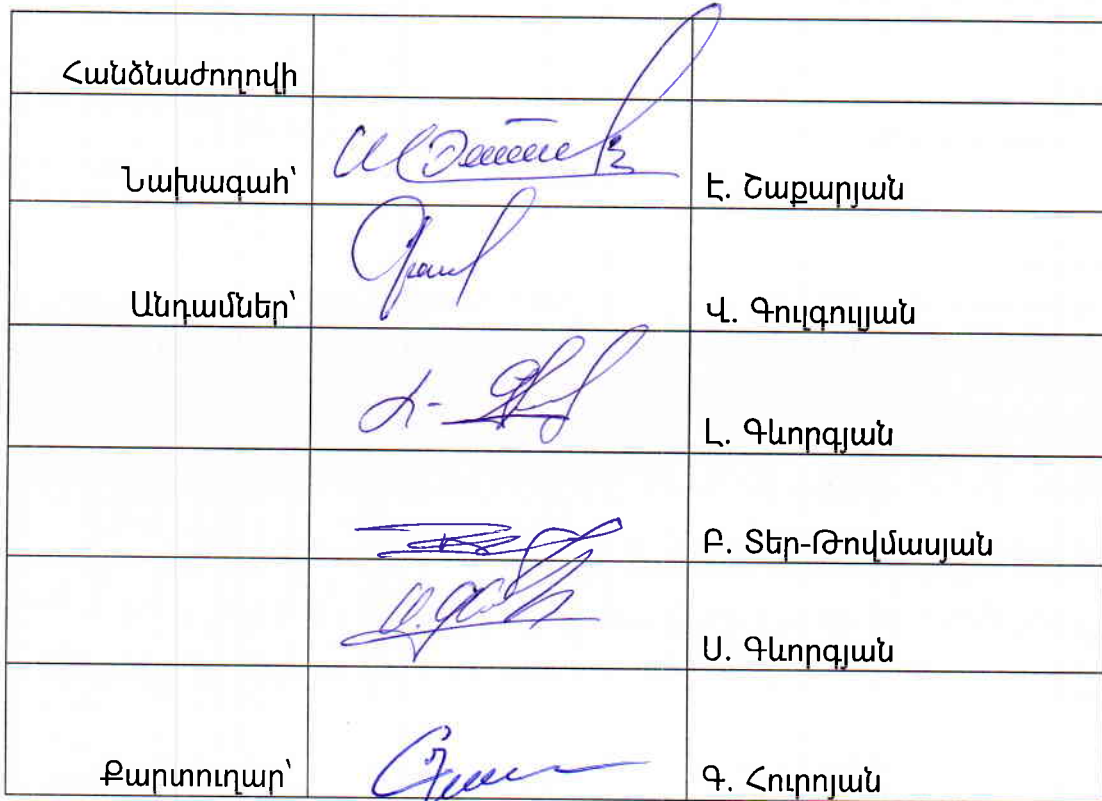 Հանձնաժողովի
Նախագահ՝ Է. Շաքարյան
Անդամներ՝ Վ. Գուլգուլյան
Լ. Գևորգյան
Բ. Տեր-Թովմասյան
Ս. Գևորգյան
Քարտուղար՝ Գ. Հուրոյան